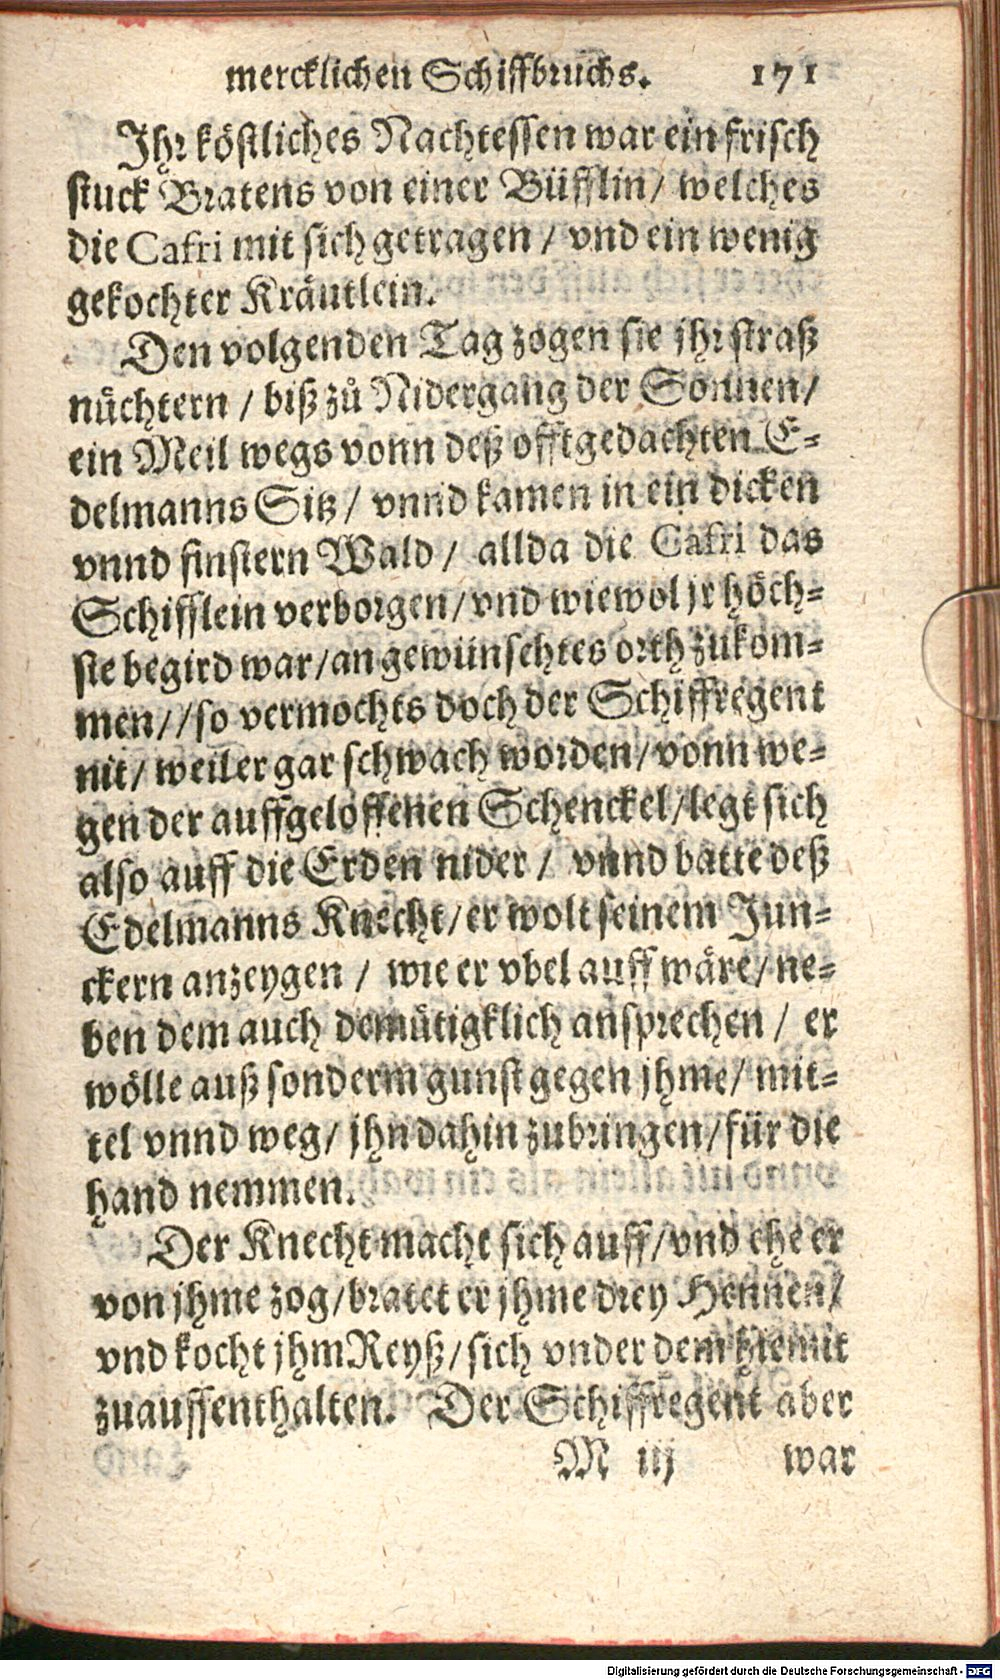 mercklichen Schiffbruchs. 171
Ihr köstliches Nachtessen war ein frisch
stuck Bratens von einer Büfflin/ welches
die Cafri mit sich getragen / vnd ein wenig
gekochter Kräutlein.
Den volgenden Tag zogen sie jhr straß
nüchtern / biß zů Nidergang der Sonnen/
ein Meil wegs vonn deß offtgedachten E-
delmanns Sitz/ vnnd kamen in ein dicken
vnnd finstern Wald/ allda die Cafri das
Schifflein verborgen/ vnd wiewol jr höch-
ste begird war/an gewünschtes orth zukom-
men//so vermochts doch der Schiffregent
nit/ weiler gar schwach worden/ vonn we-
gen der auffgeloffenen Schenckel/legt sich
also auff die Erden nider / vnnd batte deß
Edelmanns Knecht/er wolt seinem Jun-
ckern anzeygen / wie er vbel auff wäre/ ne-
ben dem auch demütigklich ansprechen / er
wölle auß sonderm gunst gegen jhme/ mit-
tel vnnd weg/ jhn dahin zubringen/für die
hand nemmen.
Der Knecht macht sich auff/vnd ehe er
von jhme zog/bratet er jhme drey Hennen/
vnd kocht jhm Reyß/sich vnder dem hiemit
zuauffenthalten. Der Schiffregent aber
M iij war
Digitalisierung gefördert durch die Deutsche Forschungsgemeinschaft - DFG